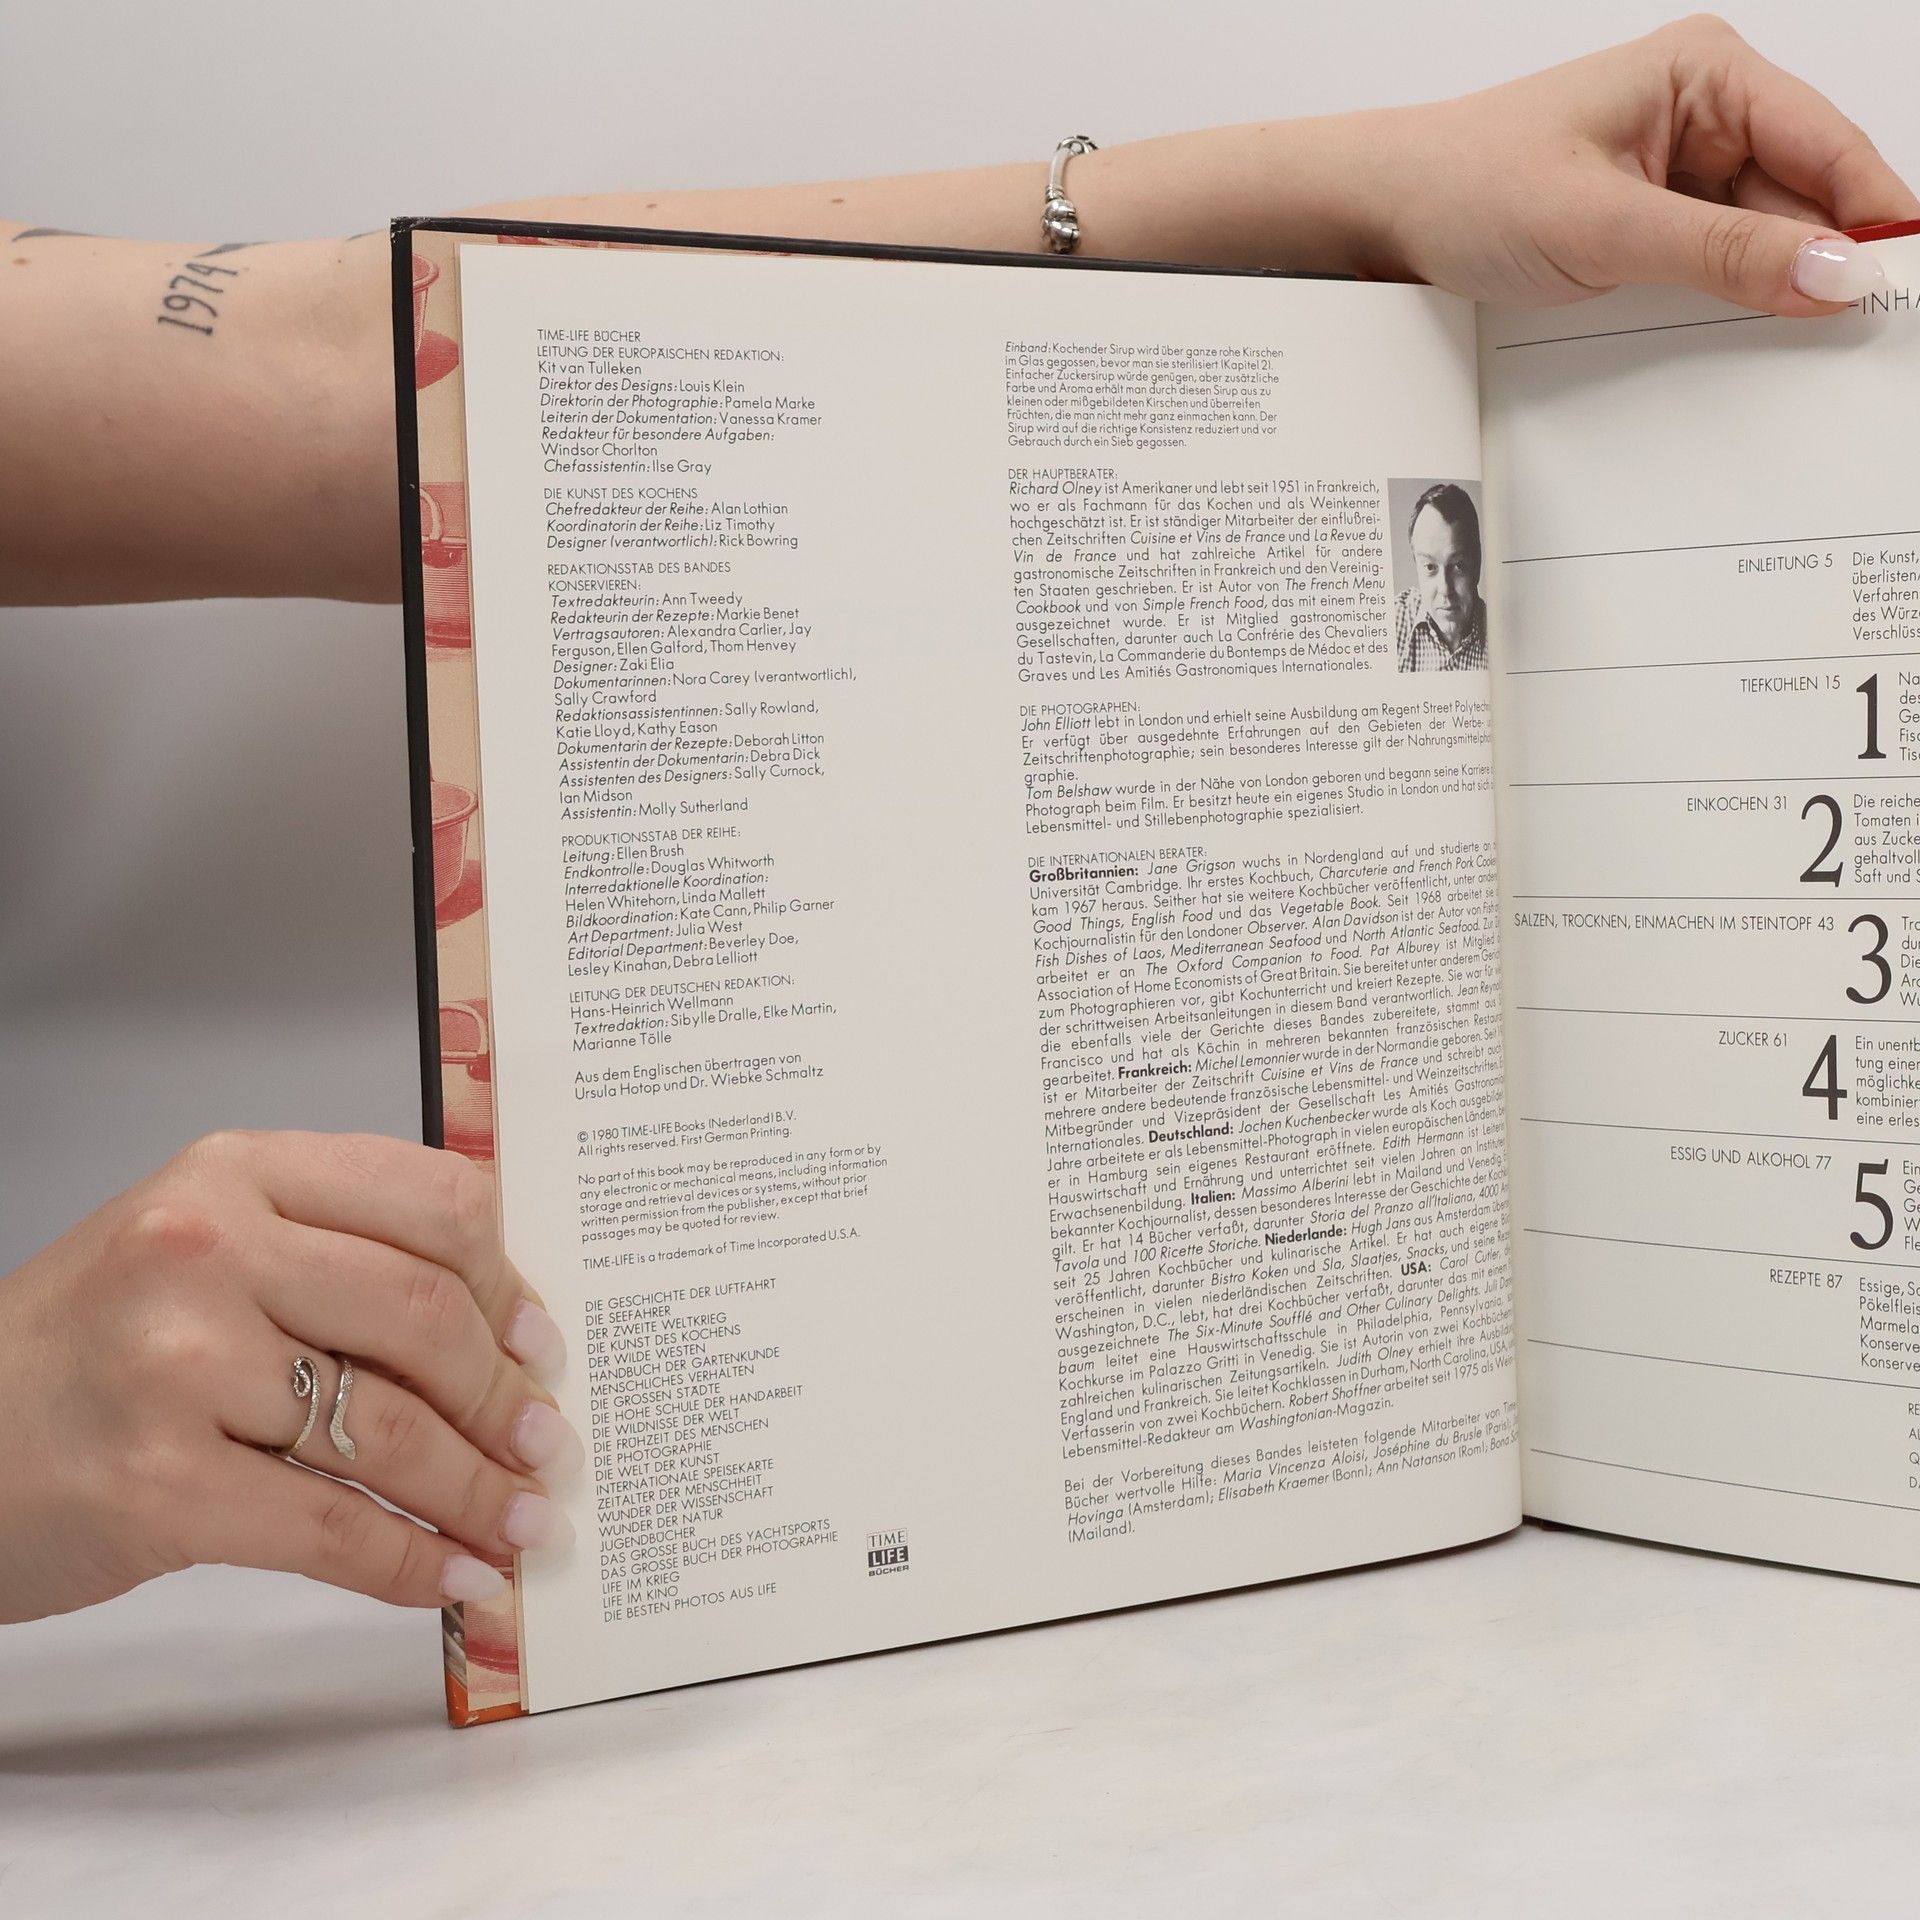 1974
TIME-LIFE BÜCHER
LEITUNG DER EUROPÄISCHEN REDAKTION:
Kit van Tulleken
Direktor des Designs: Louis Klein
Direktorin der Photographie: Pamela Marke
Leiterin der Dokumentation: Vanessa Kramer
Redakteur für besondere Aufgaben:
Windsor Chorlton
Chefassistentin: Ilse Gray
DIE KUNST DES KOCHENS
Chefredakteur der Reihe: Alan Lothian
Koordinatorin der Reihe: Liz Timothy
Designer (verantwortlich): Rick Bowring
REDAKTIONSSTAB DES BANDES
KONSERVIEREN:
Textredakteurin: Ann Tweedy
Redakteurin der Rezepte: Markie Benet
Vertragsautoren: Alexandra Carlier, Jay
Ferguson, Ellen Galford, Thom Henvey
Designer: Zaki Elia
Dokumentarinnen: Nora Carey (verantwortlich),
Sally Crawford
Redaktionsassistentinnen: Sally Rowland,
Katie Lloyd, Kathy Eason
Dokumentarin der Rezepte: Deborah Litton
Assistentin der Dokumentarin: Debra Dick
Assistenten des Designers: Sally Curnock,
Ian Midson
Assistentin: Molly Sutherland
PRODUKTIONSSTAB DER REIHE:
Leitung: Ellen Brush
Endkontrolle: Douglas Whitworth
Interredaktionelle Koordination:
Helen Whitehorn, Linda Mallett
Bildkoordination: Kate Cann, Philip Garner
Art Department: Julia West
Editorial Department: Beverley Doe,
Lesley Kinahan, Debra Lelliott
LEITUNG DER DEUTSCHEN REDAKTION:
Hans-Heinrich Wellmann
Textredaktion: Sibylle Dralle, Elke Martin,
Marianne Tölle
Aus dem Englischen übertragen von
Ursula Hotop und Dr. Wiebke Schmaltz
© 1980 TIME-LIFE Books (Nederland) B.V.
All rights reserved. First German Printing.
No part of this book may be reproduced in any form or by
any electronic or mechanical means, including information
storage and retrieval devices or systems, without prior
written permission from the publisher, except that brief
passages may be quoted for review.
TIME-LIFE is a trademark of Time Incorporated U.S.A.
DIE GESCHICHTE DER LUFTFAHRT
DIE SEEFAHRER
DER ZWEITE WELTKRIEG
DIE KUNST DES KOCHENS
DER WILDE WESTEN
HANDBUCH DER GARTENKUNDE
MENSCHLICHES VERHALTEN
DIE GROSSEN STÄDTE
DIE HOHE SCHULE DER HANDARBEIT
DIE WILDNISSE DER WELT
DIE FRÜHZEIT DES MENSCHEN
DIE PHOTOGRAPHIE
DIE WELT DER KUNST
INTERNATIONALE SPEISEKARTE
ZEITALTER DER MENSCHHEIT
WUNDER DER WISSENSCHAFT
WUNDER DER NATUR
JUGENDBÜCHER
DAS GROSSE BUCH DES YACHTSPORTS
DAS GROSSE BUCH DER PHOTOGRAPHIE
LIFE IM KRIEG
LIFE IM KINO
DIE BESTEN PHOTOS AUS LIFE
TIME
LIFE
BÜCHER
Einband: Kochender Sirup wird über ganze rohe Kirschen
im Glas gegossen, bevor man sie sterilisiert (Kapitel 2).
Einfacher Zuckersirup würde genügen, aber zusätzliche
Farbe und Aroma erhält man durch diesen Sirup aus zu
kleinen oder mißgebildeten Kirschen und überreifen
Früchten, die man nicht mehr ganz einmachen kann. Der
Sirup wird auf die richtige Konsistenz reduziert und vor
Gebrauch durch ein Sieb gegossen.
DER HAUPTBERATER:
Richard Olney ist Amerikaner und lebt seit 1951 in Frankreich,
wo er als Fachmann für das Kochen und als Weinkenner
hochgeschätzt ist. Er ist ständiger Mitarbeiter der einflußrei-
chen Zeitschriften Cuisine et Vins de France und La Revue du
Vin de France und hat zahlreiche Artikel für andere
gastronomische Zeitschriften in Frankreich und den Vereinig-
ten Staaten geschrieben. Er ist Autor von The French Menu
Cookbook und von Simple French Food, das mit einem Preis
ausgezeichnet wurde. Er ist Mitglied gastronomischer
Gesellschaften, darunter auch La Confrérie des Chevaliers
du Tastevin, La Commanderie du Bontemps de Médoc et des
Graves und Les Amitiés Gastronomiques Internationales.
DIE PHOTOGRAPHEN:
John Elliott lebt in London und erhielt seine Ausbildung am Regent Street Polytechn
Er verfügt über ausgedehnte Erfahrungen auf den Gebieten der Werbe-
Zeitschriftenphotographie; sein besonderes Interesse gilt der Nahrungsmittelpho
graphie.
Tom Belshaw wurde in der Nähe von London geboren und begann seine Karriere
Photograph beim Film. Er besitzt heute ein eigenes Studio in London und hat sich
Lebensmittel- und Stillebenphotographie spezialisiert.
DIE INTERNATIONALEN BERATER:
Großbritannien: Jane Grigson wuchs in Nordengland auf und studierte an
Universität Cambridge. Ihr erstes Kochbuch, Charcuterie and French Pork Cooke
kam 1967 heraus. Seither hat sie weitere Kochbücher veröffentlicht, unter ander
Good Things, English Food und das Vegetable Book. Seit 1968 arbeitet sie
Kochjournalistin für den Londoner Observer. Alan Davidson ist der Autor von Fish
Fish Dishes of Laos, Mediterranean Seafood und North Atlantic Seafood. Zur
arbeitet er an The Oxford Companion to Food. Pat Alburey ist Mitglied
Association of Home Economists of Great Britain. Sie bereitet unter anderem Geri
zum Photographieren vor, gibt Kochunterricht und kreiert Rezepte. Sie war für
der schrittweisen Arbeitsanleitungen in diesem Band verantwortlich. Jean Reyno
die ebenfalls viele der Gerichte dieses Bandes zubereitete, stammt aus
Francisco und hat als Köchin in mehreren bekannten französischen Restaur
gearbeitet. Frankreich: Michel Lemonnier wurde in der Normandie geboren. Seit
ist er Mitarbeiter der Zeitschrift Cuisine et Vins de France und schreibt auch
mehrere andere bedeutende französische Lebensmittel- und Weinzeitschriften.
Mitbegründer und Vizepräsident der Gesellschaft Les Amitiés Gastronomi
Internationales. Deutschland: Jochen Kuchenbecker wurde als Koch ausgebilde
Jahre arbeitete er als Lebensmittel-Photograph in vielen europäischen Ländern, be
er in Hamburg sein eigenes Restaurant eröffnete. Edith Hermann ist Leiterin
Hauswirtschaft und Ernährung und unterrichtet seit vielen Jahren an Instituten
Erwachsenenbildung. Italien: Massimo Alberini lebt in Mailand und Venedig.
bekannter Kochjournalist, dessen besonderes Interesse der Geschichte der Kochk
gilt. Er hat 14 Bücher verfaßt, darunter Storia del Pranzo all'Italiana, 4000 An
Tavola und 100 Ricette Storiche. Niederlande: Hugh Jans aus Amsterdam überse
seit 25 Jahren Kochbücher und kulinarische Artikel. Er hat auch eigene Bü
veröffentlicht, darunter Bistro Koken und Sla, Slaatjes, Snacks, und seine Reze
erscheinen in vielen niederländischen Zeitschriften. USA: Carol Cutler, die
Washington, D.C., lebt, hat drei Kochbücher verfaßt, darunter das mit einem
ausgezeichnete The Six-Minute Soufflé and Other Culinary Delights. Juli Dann
baum leitet eine Hauswirtschaftsschule in Philadelphia, Pennsylvania,
Kochkurse im Palazzo Gritti in Venedig. Sie ist Autorin von zwei Kochbüchern
zahlreichen kulinarischen Zeitungsartikeln. Judith Olney erhielt ihre Ausbildun
England und Frankreich. Sie leitet Kochklassen in Durham, North Carolina, USA,
Verfasserin von zwei Kochbüchern. Robert Shoffner arbeitet seit 1975 als Wein-
Lebensmittel-Redakteur am Washingtonian-Magazin.
Bei der Vorbereitung dieses Bandes leisteten folgende Mitarbeiter von Time
Bücher wertvolle Hilfe: Maria Vincenza Aloisi, Joséphine du Brusle (Paris);
Hovinga (Amsterdam); Elisabeth Kraemer (Bonn); Ann Natanson (Rom); Bona
(Mailand).
INHA
EINLEITUNG 5
Die Kunst,
überlisten/
Verfahren
des Würz
Verschlüss
TIEFKÜHLEN 15
1
Na
des
Ge
Fisc
Tis
EINKOCHEN 31
2
Die reiche
Tomaten i
aus Zucke
gehaltvoll
Saft und S
SALZEN, TROCKNEN, EINMACHEN IM STEINTOPF 43
3
Tro
dur
Die
Aro
Wu
ZUCKER 61
4
Ein unentb
tung einer
möglichke
kombinier
eine erles
ESSIG UND ALKOHOL 77
5
Ein
Ge
Ge
W
Fle
REZEPTE 87
Essige, So
Pökelfleis
Marmela
Konserve
Konserve
RE
AL
Q
DA